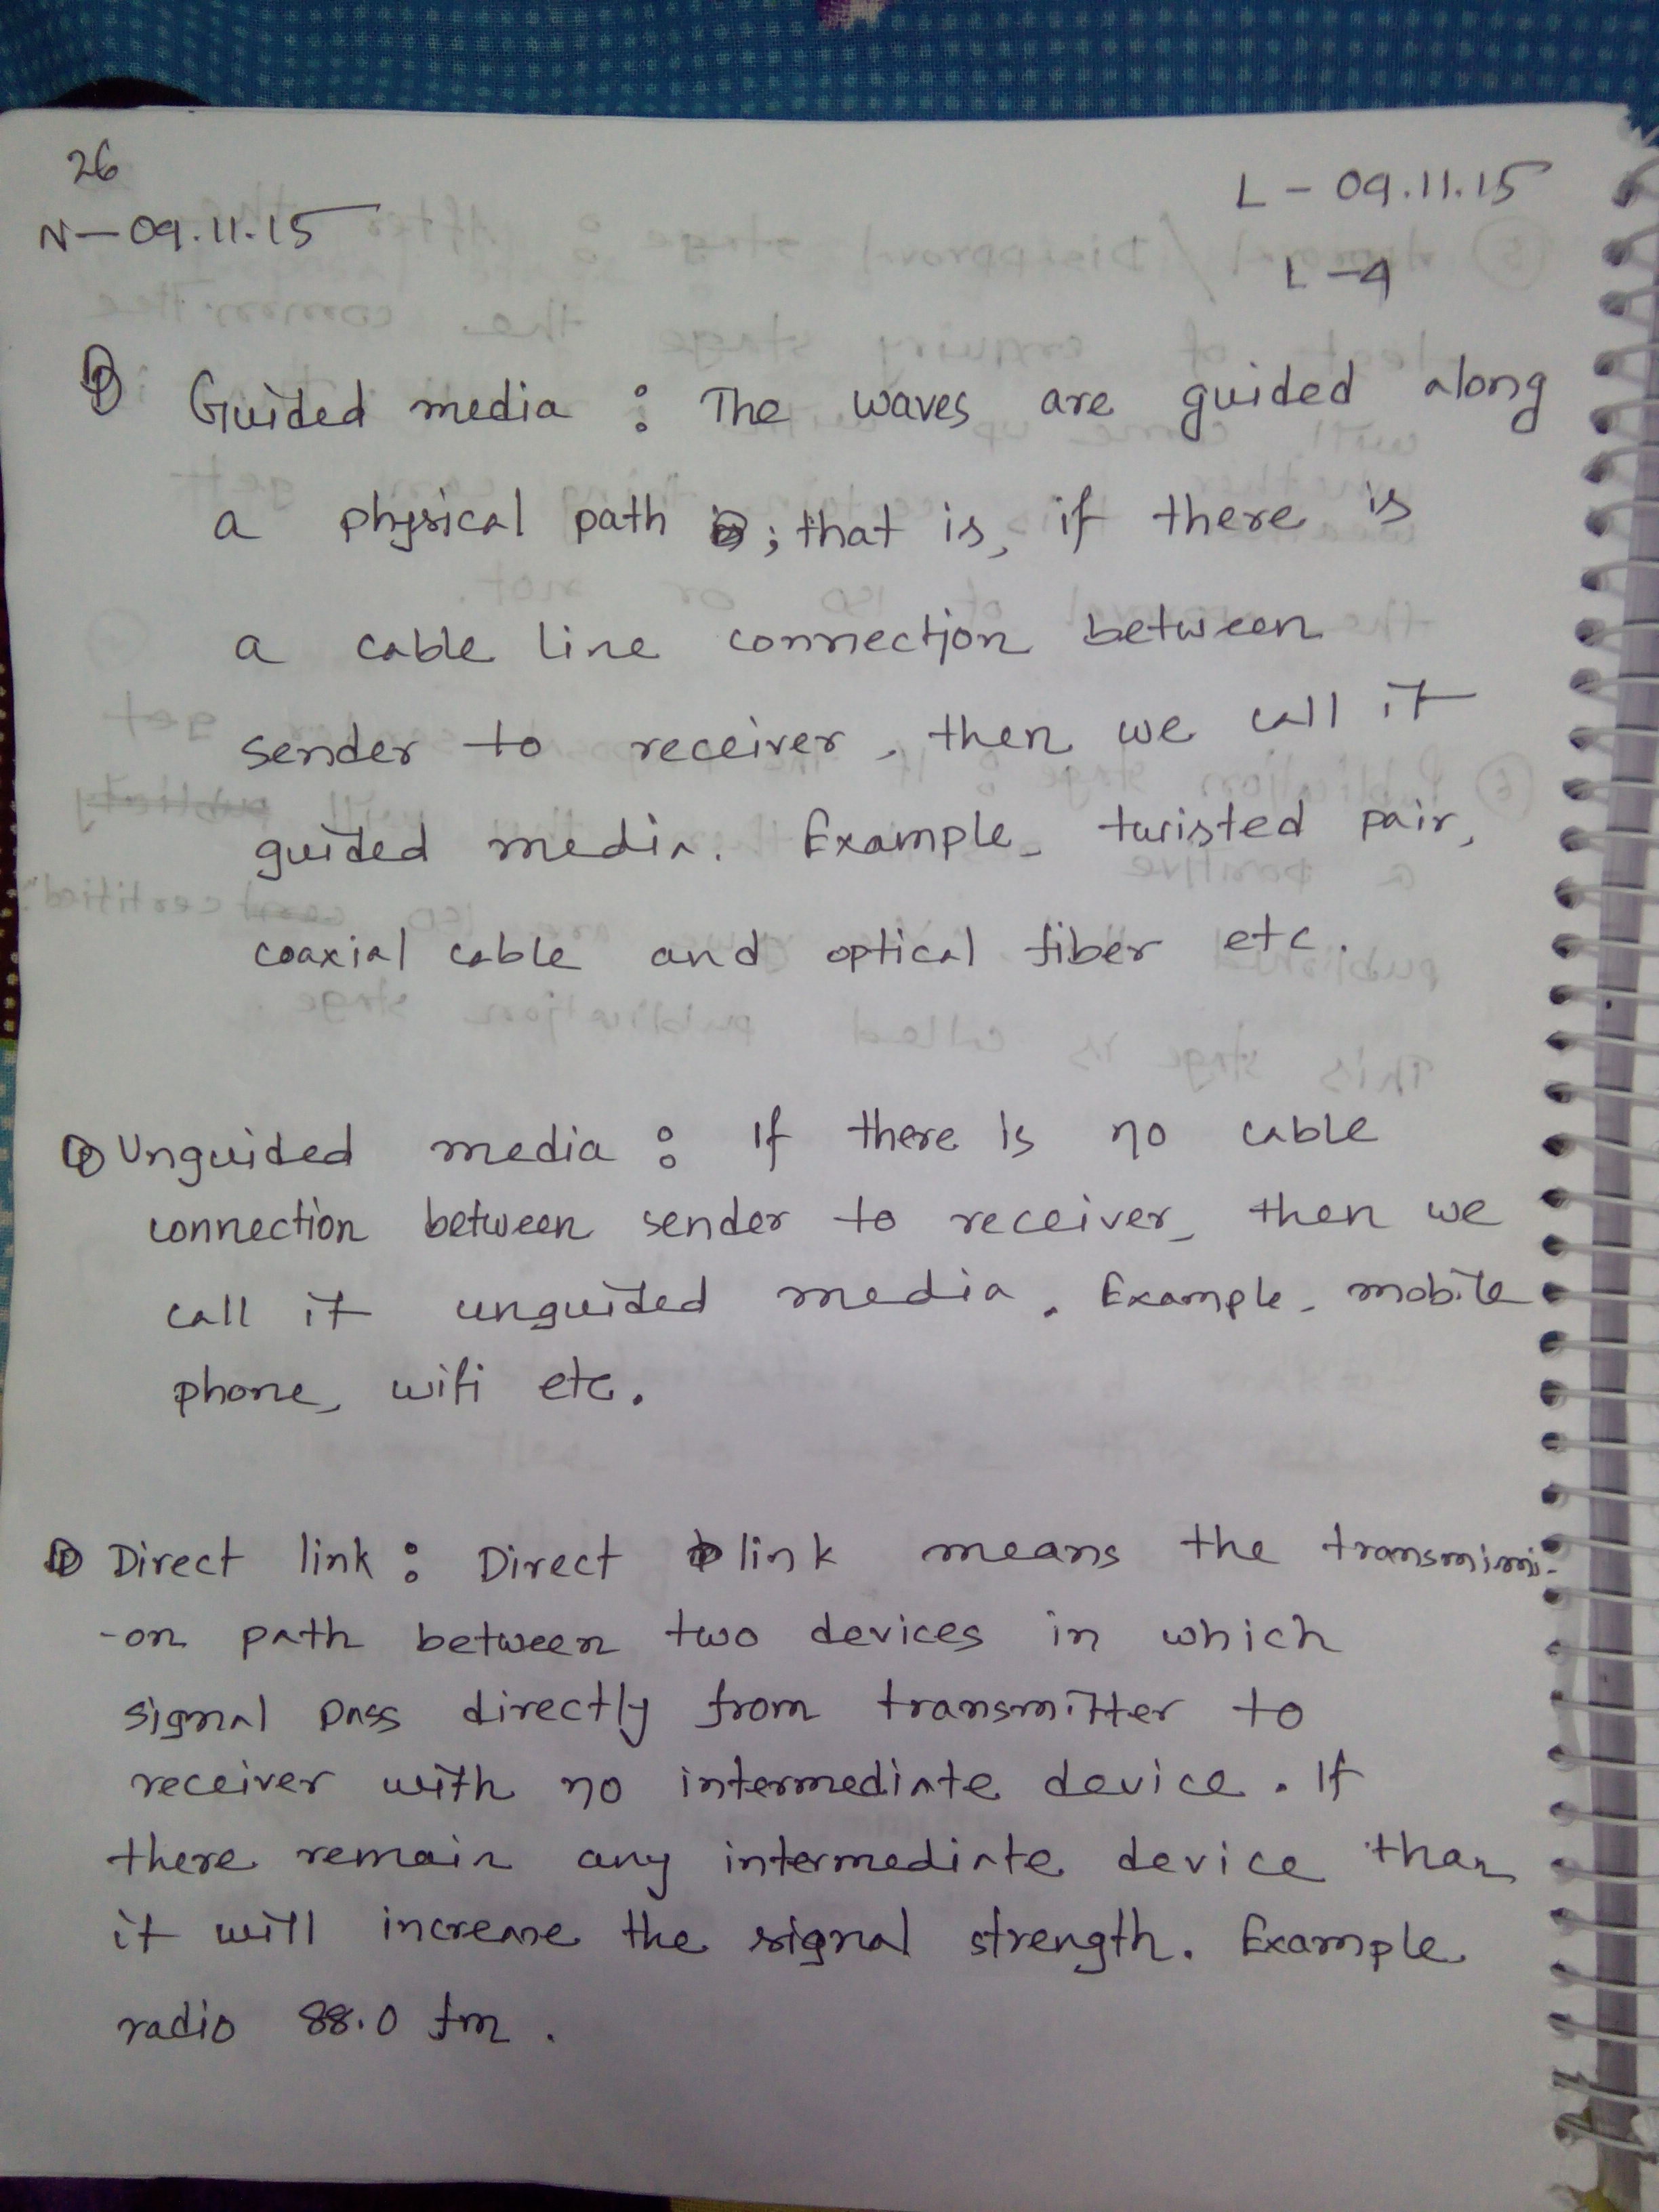 26
N-09.11.15
L - 09.11.15
L-4
Guided media : The waves are guided along
a physical path ; that is, if there is
a cable line connection between
sender to receiver, then we call it
guided media. Example- twisted pair,
coaxial cable and optical fiber etc.
Unguided media : If there is no cable
connection between sender to receiver, then we
call it unguided media. Example- mobile
phone, wifi etc.
Direct link : Direct link means the transmimi-
-on path between two devices in which
signal pass directly from transmitter to
receiver with no intermediate device. If
there remain any intermediate device than
it will increase the signal strength. Example
radio 88.0 fm.